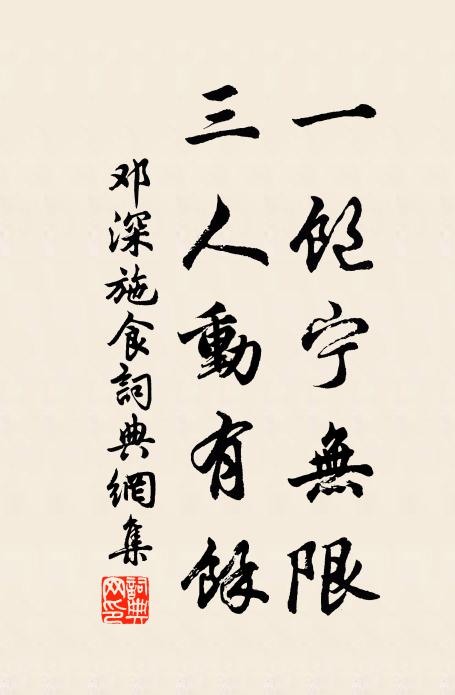 一飽宁無限
三人動有餘
邓深施食詞典網集
詞典网印